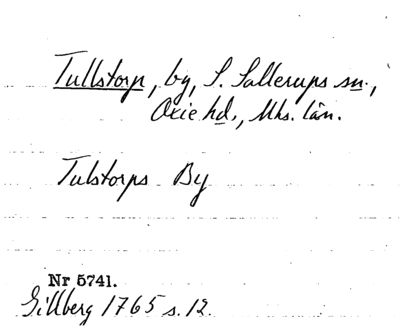 Tullstorp, by, S. Sallerups sn.,
Oxie hd., Mhs. län.
Tulstorps By
Nr 5741.
Gillberg 1765 s. 12.